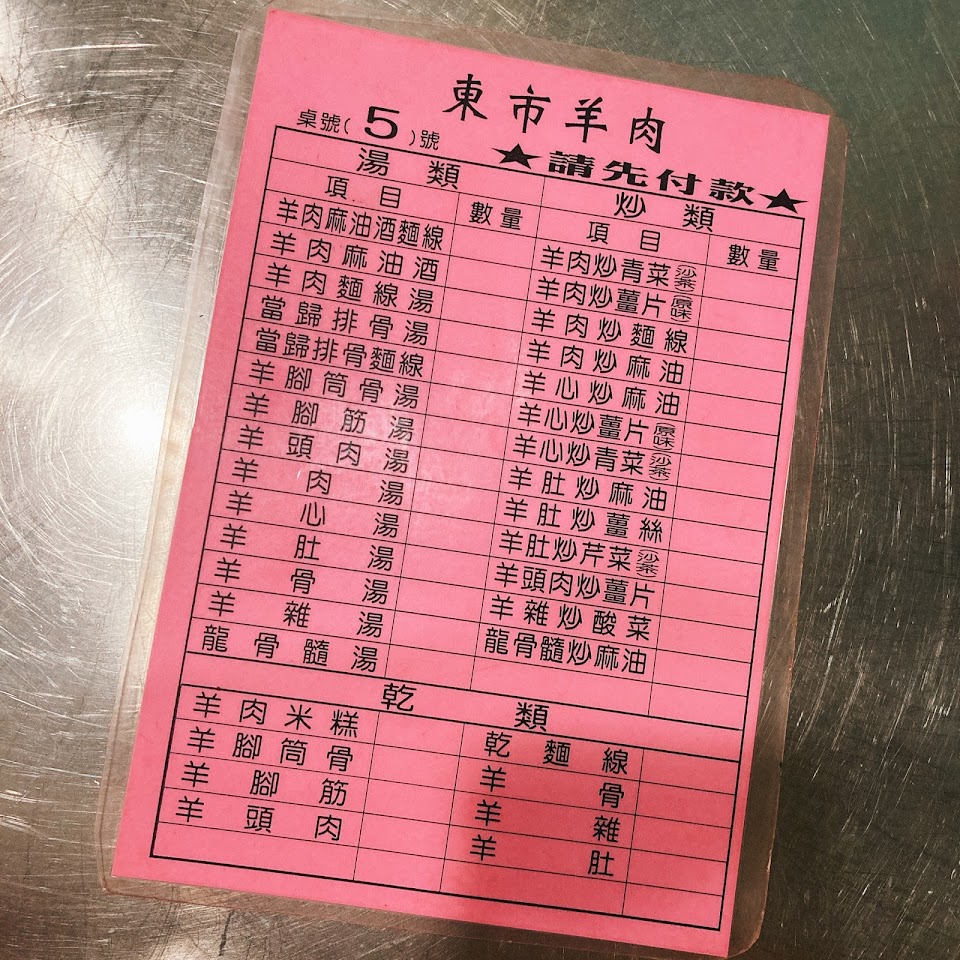 東市羊肉
桌號(5)號
★請先付款★
湯類
項目 數量
羊肉麻油酒麵線
羊肉麻油酒
羊肉麵線湯
當歸排骨湯
當歸排骨麵線
羊腳筒骨湯
羊腳筋湯
羊頭肉湯
羊肉湯
羊心湯
羊肚湯
羊骨湯
羊雜湯
龍骨髓湯
炒類
項目 數量
羊肉炒青菜(沙茶)
羊肉炒薑片(原味)
羊肉炒麵線
羊肉炒麻油
羊心炒麻油
羊心炒薑片(原味)
羊心炒青菜(沙茶)
羊肚炒麻油
羊肚炒薑絲
羊肚炒芹菜(沙茶)
羊頭肉炒薑片
羊雜炒酸菜
龍骨髓炒麻油
乾類
羊肉米糕
羊腳筒骨
羊腳筋
羊頭肉
乾麵線
羊骨
羊雜
羊肚